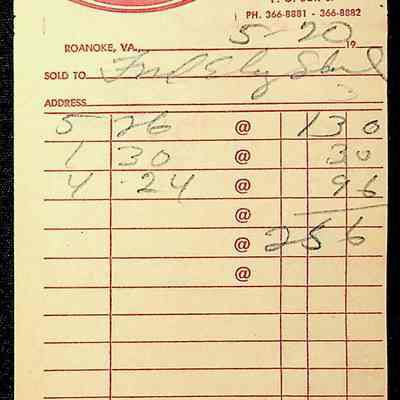 PH. 366-8881 - 366-8882
ROANOKE, VA., 5-20 19
SOLD TO Fred
ADDRESS
5 26 @ 1 30
1 30 @ 30
4 .24 @ 96
@
@ 2 5 6
@